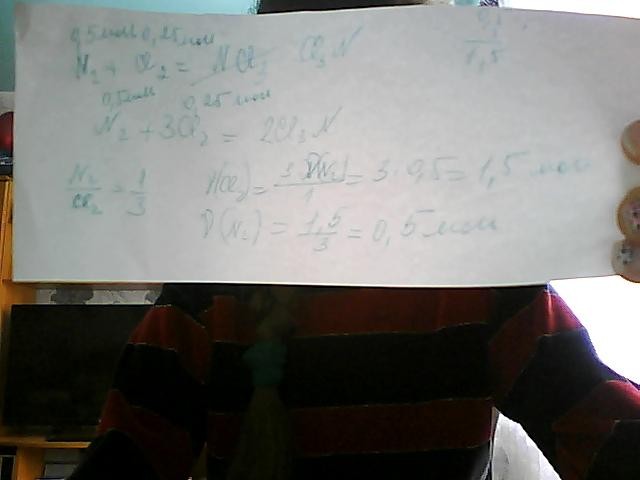 0,5 моль 0,25 моль
N₂ + Cl₂ = NCl₃ Cl₃N
0,5 моль 0,25 моль
N₂ + 3Cl₂ = 2Cl₃N
N₂/Cl₂ = 1/3
ν(Cl₂) = 3·ν(N₂)/1 = 3 · 0,5 = 1,5 моль
ν(N₂) = 1,5/3 = 0,5 моль
1,5